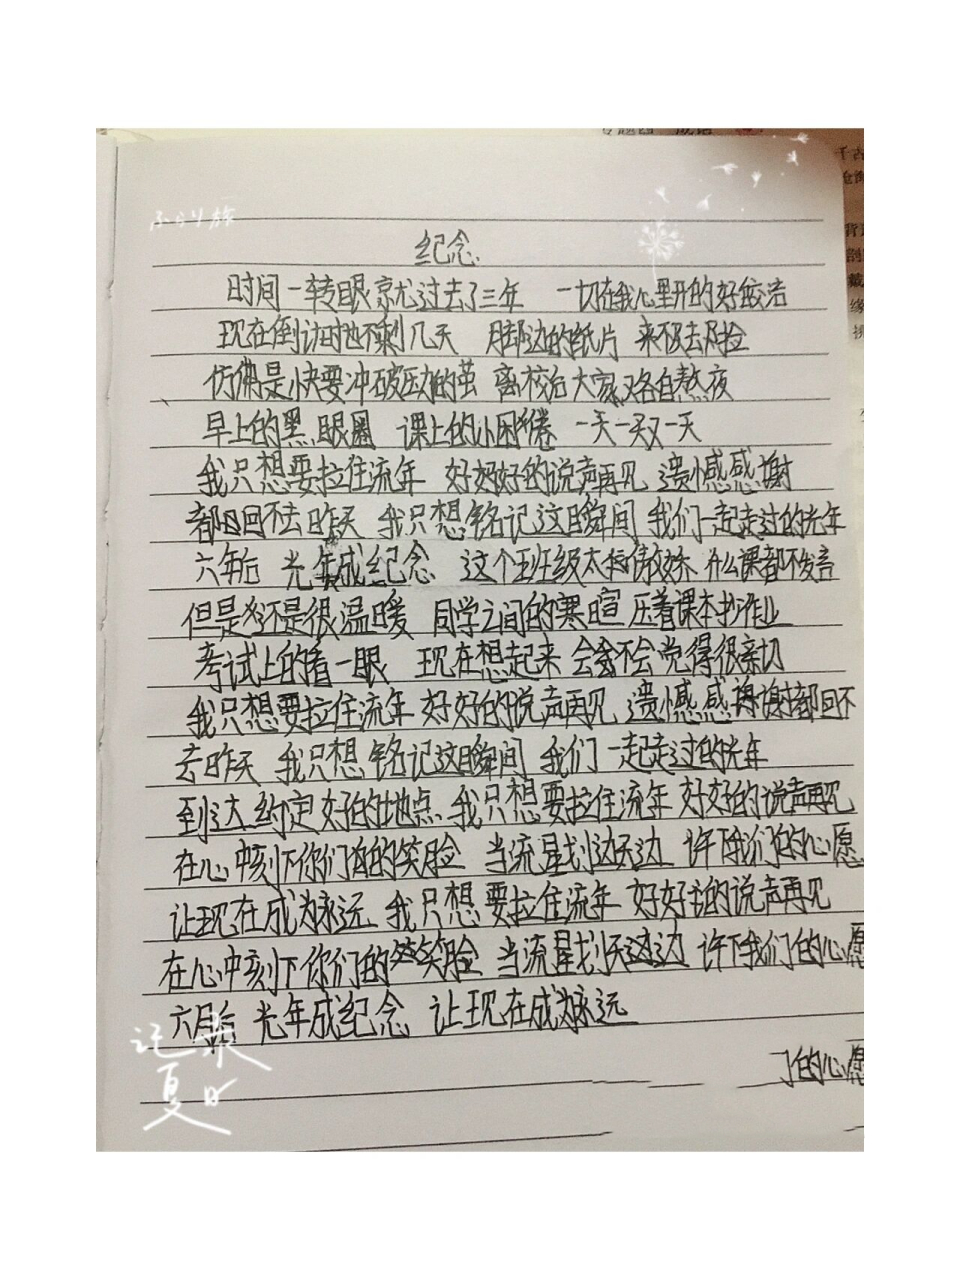 专题四 成语
千古
背
剖
戴
缘
纪念
时间一转眼就过去了三年 一切在我心里开的好皎洁
现在倒计时也不剩几天 脚边的纸片 来不及去捡
仿佛是快要冲破茧的茧 离校后大家又各自熬夜
早上的黑眼圈 课上的小困倦 一天一天又一天
我只想要拉住流年 好好好的说声再见 遗憾感感谢
都回不去昨天 我只想铭记这瞬间 我们一起走过的光年
六年后 光年成纪念 这个班级太 什么课都不发言
但是还是很温暖 同学之间的寒暄 压着课本抄作业
考试上的看一眼 现在想起来 会会不会觉得很亲切
我只想要拉住流年 好好的说声再见 遗憾感感谢谢都回不
去昨天 我只想铭记这瞬间 我们一起走过的光年
到达约定好的地点 我只想要拉住流年 好好的说声再见
在心中刻下你们的笑脸 当流星划边天边 许下我们的心愿
让现在成为永远 我只想要拉住流年 好好的说声再见
在心中刻下你们的笑脸 当流星划天边 许下我们的心愿
六月后 光年成纪念 让现在成为永远
的心愿
记录
夏日